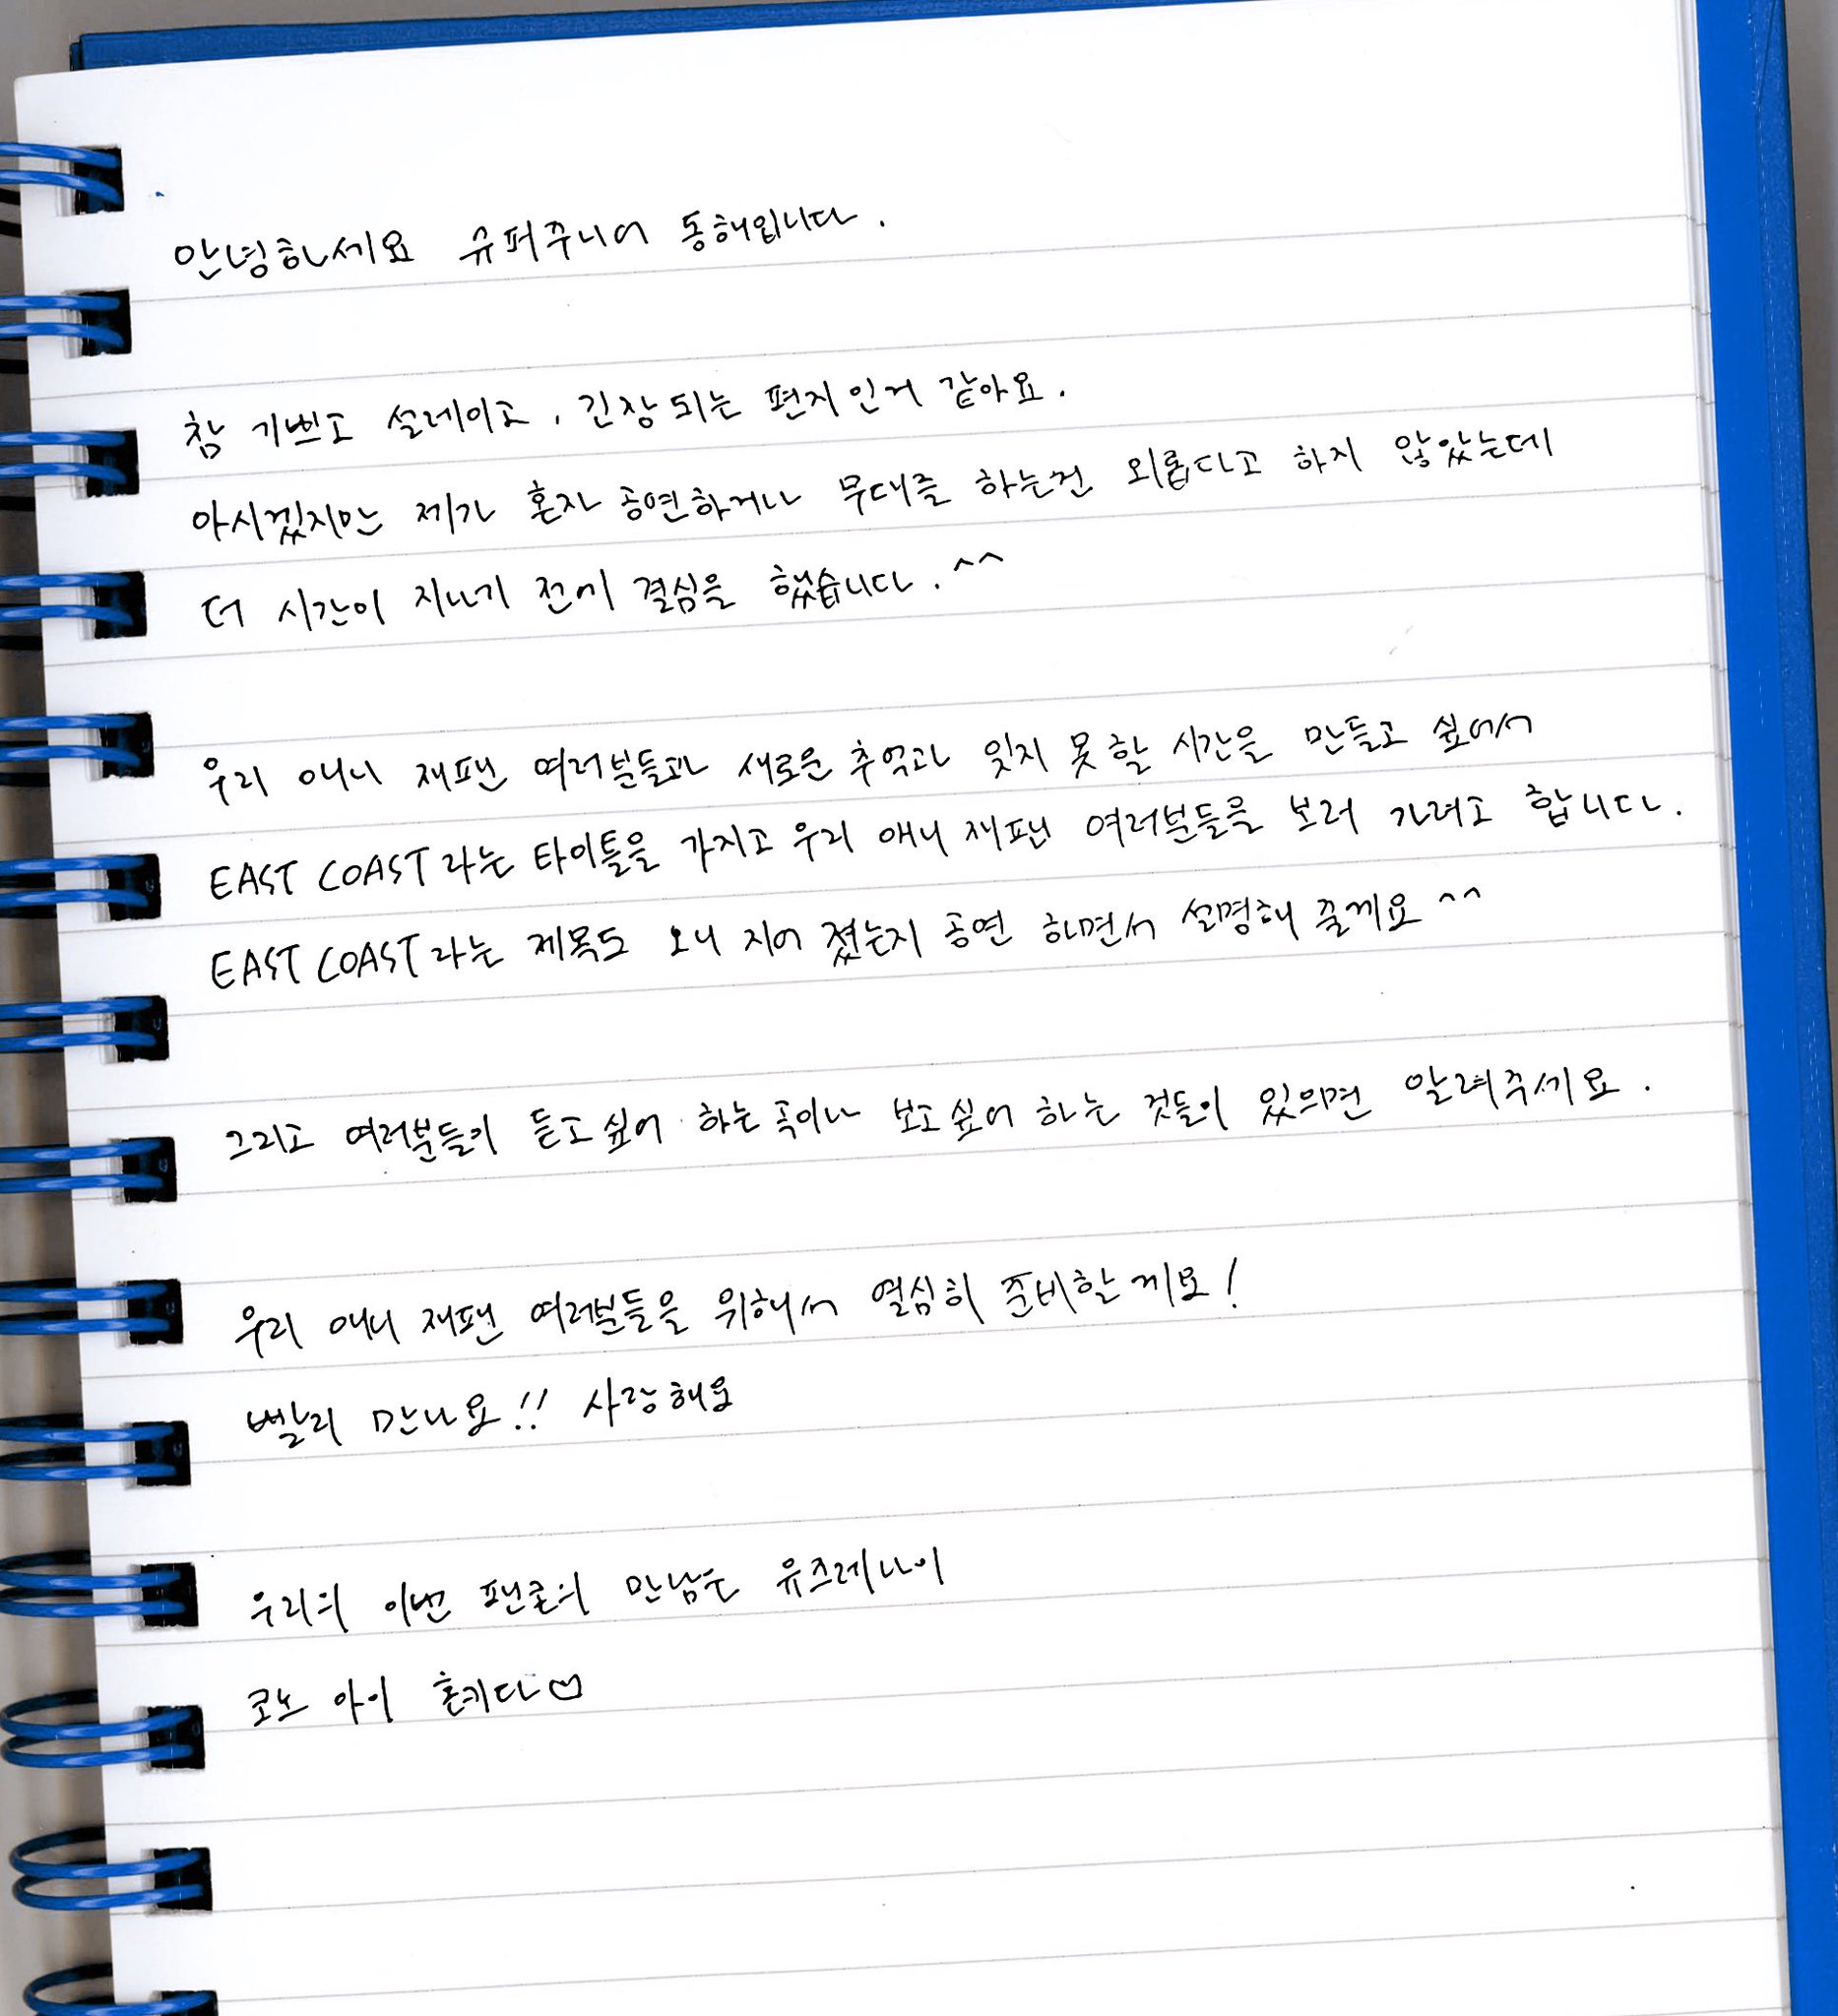 안녕하세요 슈퍼쥬니어 동해입니다.
참 기쁘고 설레이고, 긴장되는 편지인거 같아요.
아시겠지만 제가 혼자 공연하거나 무대를 하는건 외롭다고 하지 않았는데
더 시간이 지나기 전에 결심을 했습니다. ^^
우리 애니 재팬 여러분들과 새로운 추억과 잊지 못할 시간을 만들고 싶어서
EAST COAST 라는 타이틀을 가지고 우리 애니 재팬 여러분들을 보러 가려고 합니다.
EAST COAST 라는 제목도 오니 지어 졌는지 공연 하면서 설명해 줄께요 ^^
그리고 여러분들이 듣고싶어 하는 곡이나 보고싶어 하는 것들이 있으면 알려주세요.
우리 애니 재팬 여러분들을 위해서 열심히 준비할게요!
빨리 만나요!! 사랑해요
우리의 이번 팬콘의 만남은 유즈레나이
코노 아이 혼키다♡